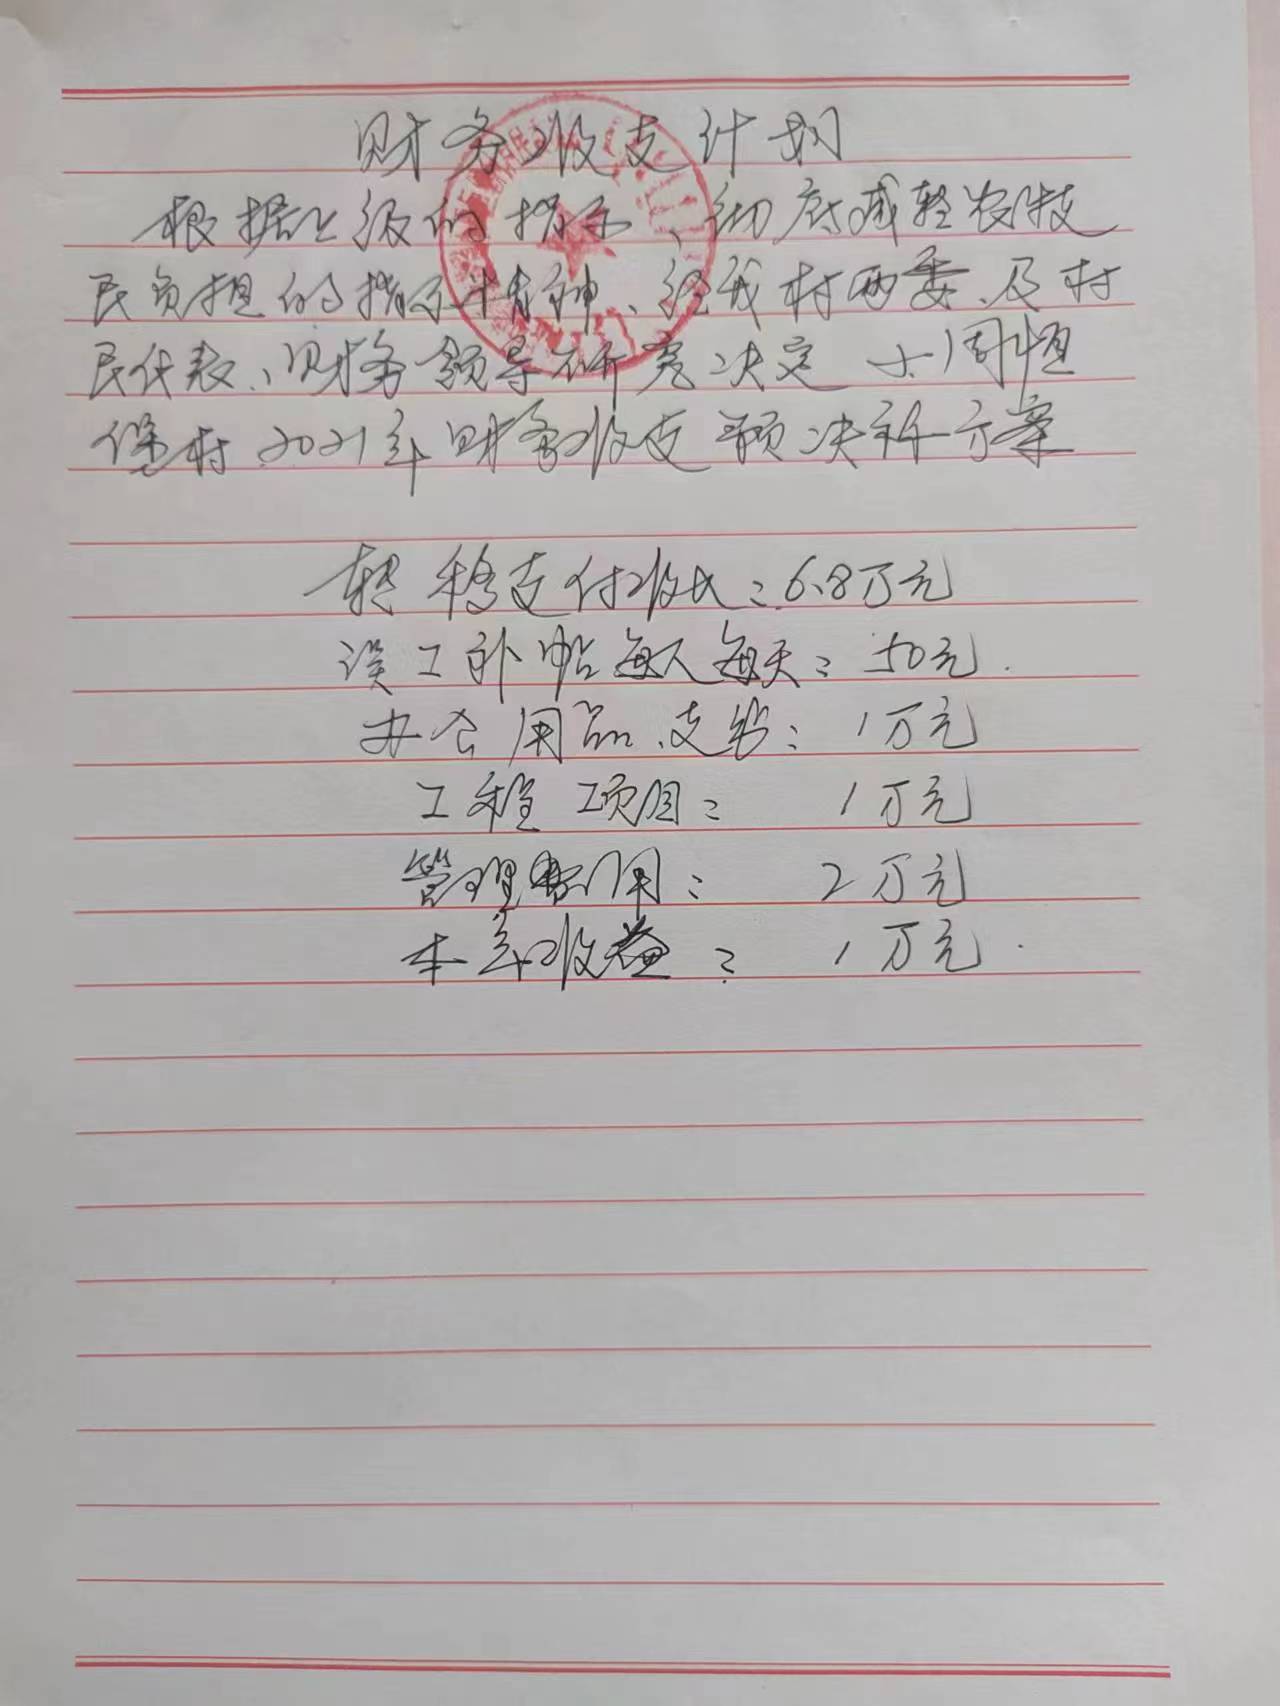 财务收支计划
根据上级的指示、彻底减轻农村
民负担的指示精神、经我村两委、及村
民代表、财务领导研究决定 大周恒
保村2021年财务收支预决算方案
转移支付收入：6.8万元
误工补帖每人每天：50元.
办公用品支出：1万元
工程项目：1万元
管理费用：2万元
本年收益：1万元.